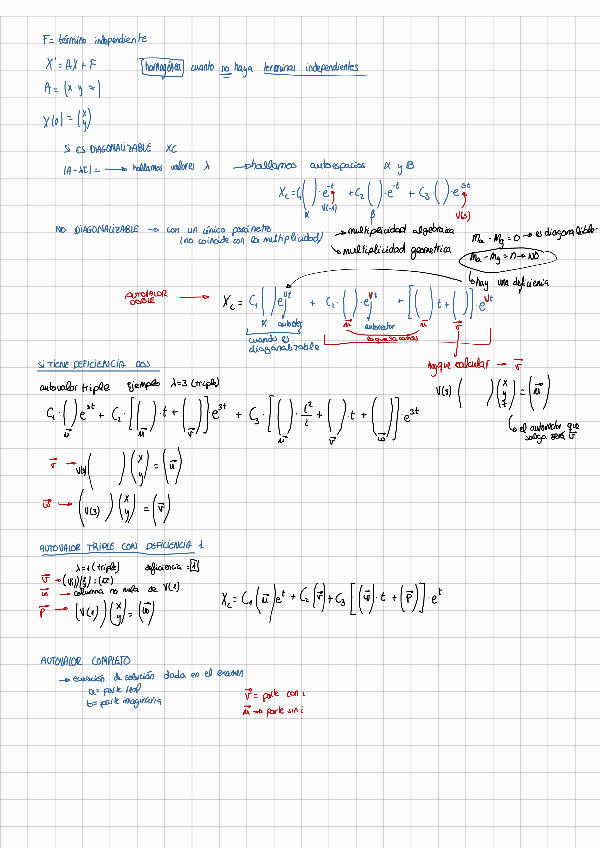 F= término independiente
X' = AX + F
homogénea cuanto no haya terminos independientes
A = (x y z)
X(0) = (x y)
SI ES DIAGONALIZABLE XC
|A-λI| = → hallamos valores λ → hallamos autoespacios α y β
Xc = C1 ( ) · e^-t + C2 ( ) · e^-t + C3 ( ) · e^3t
α V(-1) β V(3)
NO DIAGONALIZABLE → con un único parámetro
(no coincide con la multiplicidad)
→ multiplicidad algebraica
→ multiplicidad geometrica
Ma - Mg = 0 → es diagonalizable
Ma - Mg = n → NO
hay una deficiencia
AUTOVALOR DOBLE → Xc = C1 ( ) e^Vt + C2 · ( ) · e^Vt + [( ) t + ( )] · e^Vt
cuando es diagonalizable
u autovector u v
hay que calcular → v
V(3) ( ) (x y z) = (u)
el autovector que salga será v
SI TIENE DEFICIENCIA DOS
autovalor triple ejemplo λ=3 (triple)
C1 · ( ) e^3t + C2 · [( ) · t + ( )] · e^3t + C3 · [( ) · t²/2 + ( ) · t + ( )] · e^3t
u u v u v w
v → V(3) ( ) (x y) = (u)
w → (V(3)) (x y) = (v)
AUTOVALOR TRIPLE CON DEFICIENCIA 1
λ=1 (triple) deficiencia = 1
w → columna no nula de V(1)
p → (V(1)) (x y) = (w)
Xc = C1 (u) e^t + C2 (v) + C3 [(w) · t + (p)] · e^t
AUTOVALOR COMPLETO
→ ecuación de solución dada en el examen
a = parte real
b = parte imaginaria
v = parte con i
u → parte sin i